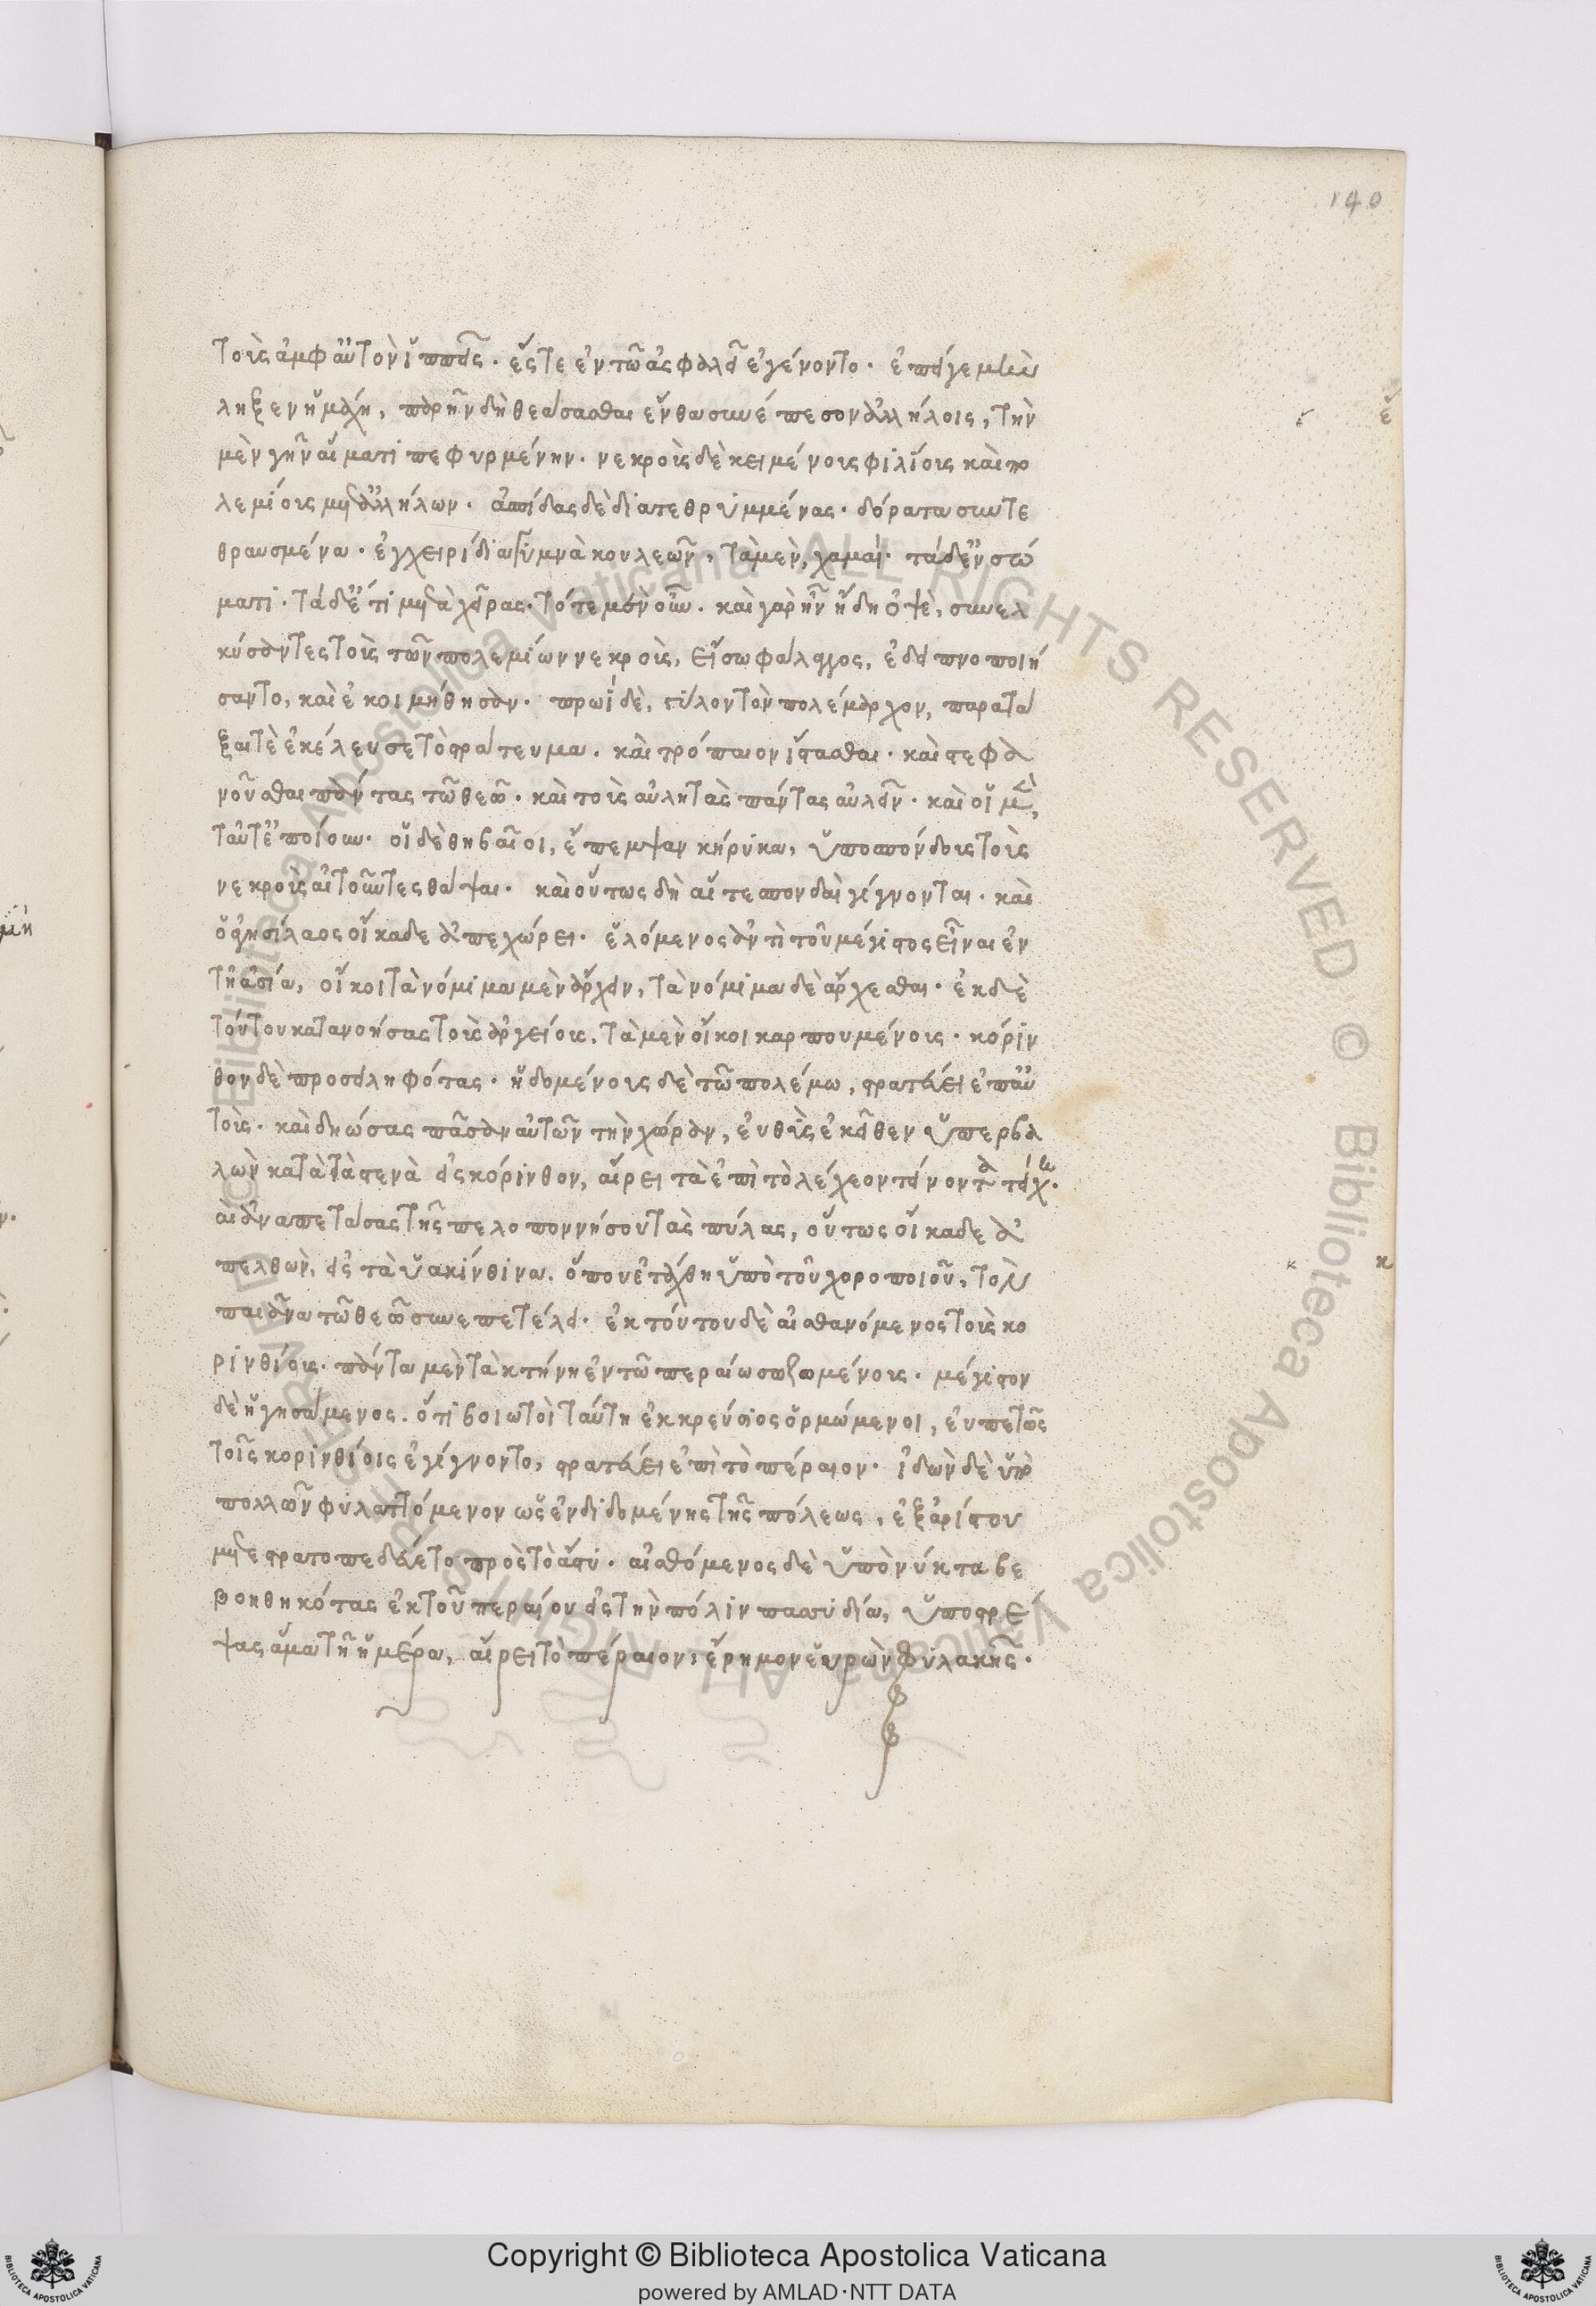 140
τοὺς ἀμφ' αὐτὸν ἵππεῖς. ἔςτε ἐν τῶ ἀσφαλεῖ ἐγένοντο. ἐπεί γε μὴν
ἔ
ληξεν ἡ μάχη, παρῆν δὴ θεάσασθαι ἔνθα συνέπεσον ἀλλήλοις, τὴν
μὲν γῆν αἵματι πεφυρμένην. νεκροὺς δὲ κειμένους φιλίους καὶ πο
λεμίους μετ' ἀλλήλων. ἀσπίδας δὲ διατεθρυμμένας. δόρατα συντε
θραυσμένα. ἐγχειρίδια γυμνὰ κουλεῶν, τὰ μὲν, χαμαί. τὰ δ' ἐν σώ
ματι. τὰ δ' ἔτι μετὰ χεῖρας. τότε μὲν οὖν. καὶ γὰρ ἦν ἤδη ὀψὲ, συνελ
κύσαντες τοὺς τῶν πολεμίων νεκροὺς, εἴσω φάλαγγος, ἐδειπνοποιή
σαντο, καὶ ἐκοιμήθησαν. πρωῒ δὲ, γύλον τὸν πολέμαρχον, παρατά
ξαι τὲ ἐκέλευσε τὸ στράτευμα. καὶ τρόπαιον ἵστασθαι. καὶ στεφα
νοῦσθαι πάντας τῶ θεῶ. καὶ τοὺς αὐλητὰς πάντας αὐλεῖν. καὶ οἱ μὲν,
ταῦτ' ἐποίουν. οἱ δὲ θηβαῖοι, ἔπεμψαν κήρυκα, ὑποσπόνδους τοὺς
νεκροὺς αἰτοῦντες θάψαι. καὶ οὕτως δὴ αἵ τε σπονδαὶ γίγνονται. καὶ
ὁ ἀγησίλαος οἴκαδε ἀπεχώρει. ἑλόμενος ἀντὶ τοῦ μέγιστος εἶναι ἐν
τῆ ἀσία, οἴκοι τὰ νόμιμα μὲν ἄρχειν, τὰ νόμιμα δὲ ἄρχεσθαι. ἐκ δὲ
τούτου κατανοήσας τοὺς ἀργείους, τὰ μὲν οἴκοι καρπουμένους. κόριν
θον δὲ προσειληφότας. ἡδομένους δὲ τῶ πολέμω, στρατεύει ἐπ' αὐ
τοὺς. καὶ δηώσας πᾶσαν αὐτῶν τὴν χώραν, ἐυθὺς ἐκεῖθεν ὑπερβα
λὼν κατὰ τὰ στενὰ εἰς κόρινθον, αἵρει τὰ ἐπὶ τὸ λέχεον τείνοντα τείχη.
αι ἀναπετάσας τῆς πελοποννήσου τὰς πύλας, οὕτως οἴκαδε ἀ
κ
πελθὼν, εἰς τὰ ὑακίνθινα. ὅπου ἐτάχθη ὑπὸ τοῦ χοροποιοῦ, τὸν
παιᾶνα τῶ θεῶ συνεπετέλει. ἐκ τούτου δὲ αἰσθανόμενος τοὺς κο
ρινθίους. πάντα μὲν τὰ κτήνη ἐν τῶ περαίω σωζομένους. μέγιστον
δὲ ἡγησάμενος. ὅτι βοιωτοὶ ταύτη ἐκ κρεύσιος ὁρμώμενοι, ἐυπετῶς
τοῖς κορινθίοις ἐγίγνοντο, στρατεύει ἐπὶ τὸ πέραιον. ἰδὼν δὲ ὑπὸ
πολλῶν φυλαττόμενον ὡς ἐνδιδομένης τῆς πόλεως, ἐξ ἀρίστου
μετεστρατοπεδεύετο πρὸς τὸ ἄστυ. αἰσθόμενος δὲ ὑπὸ νύκτα βε
βοηθηκότας ἐκ τοῦ περαίου εἰς τὴν πόλιν πασσυδία, ὑποστρέ
ψας ἅμα τῆ ἡμέρα, αἵρει τὸ πέραιον, ἔρημον εὑρὼν φυλακῆς.
μή
Copyright © Biblioteca Apostolica Vaticana
powered by AMLAD·NTT DATA